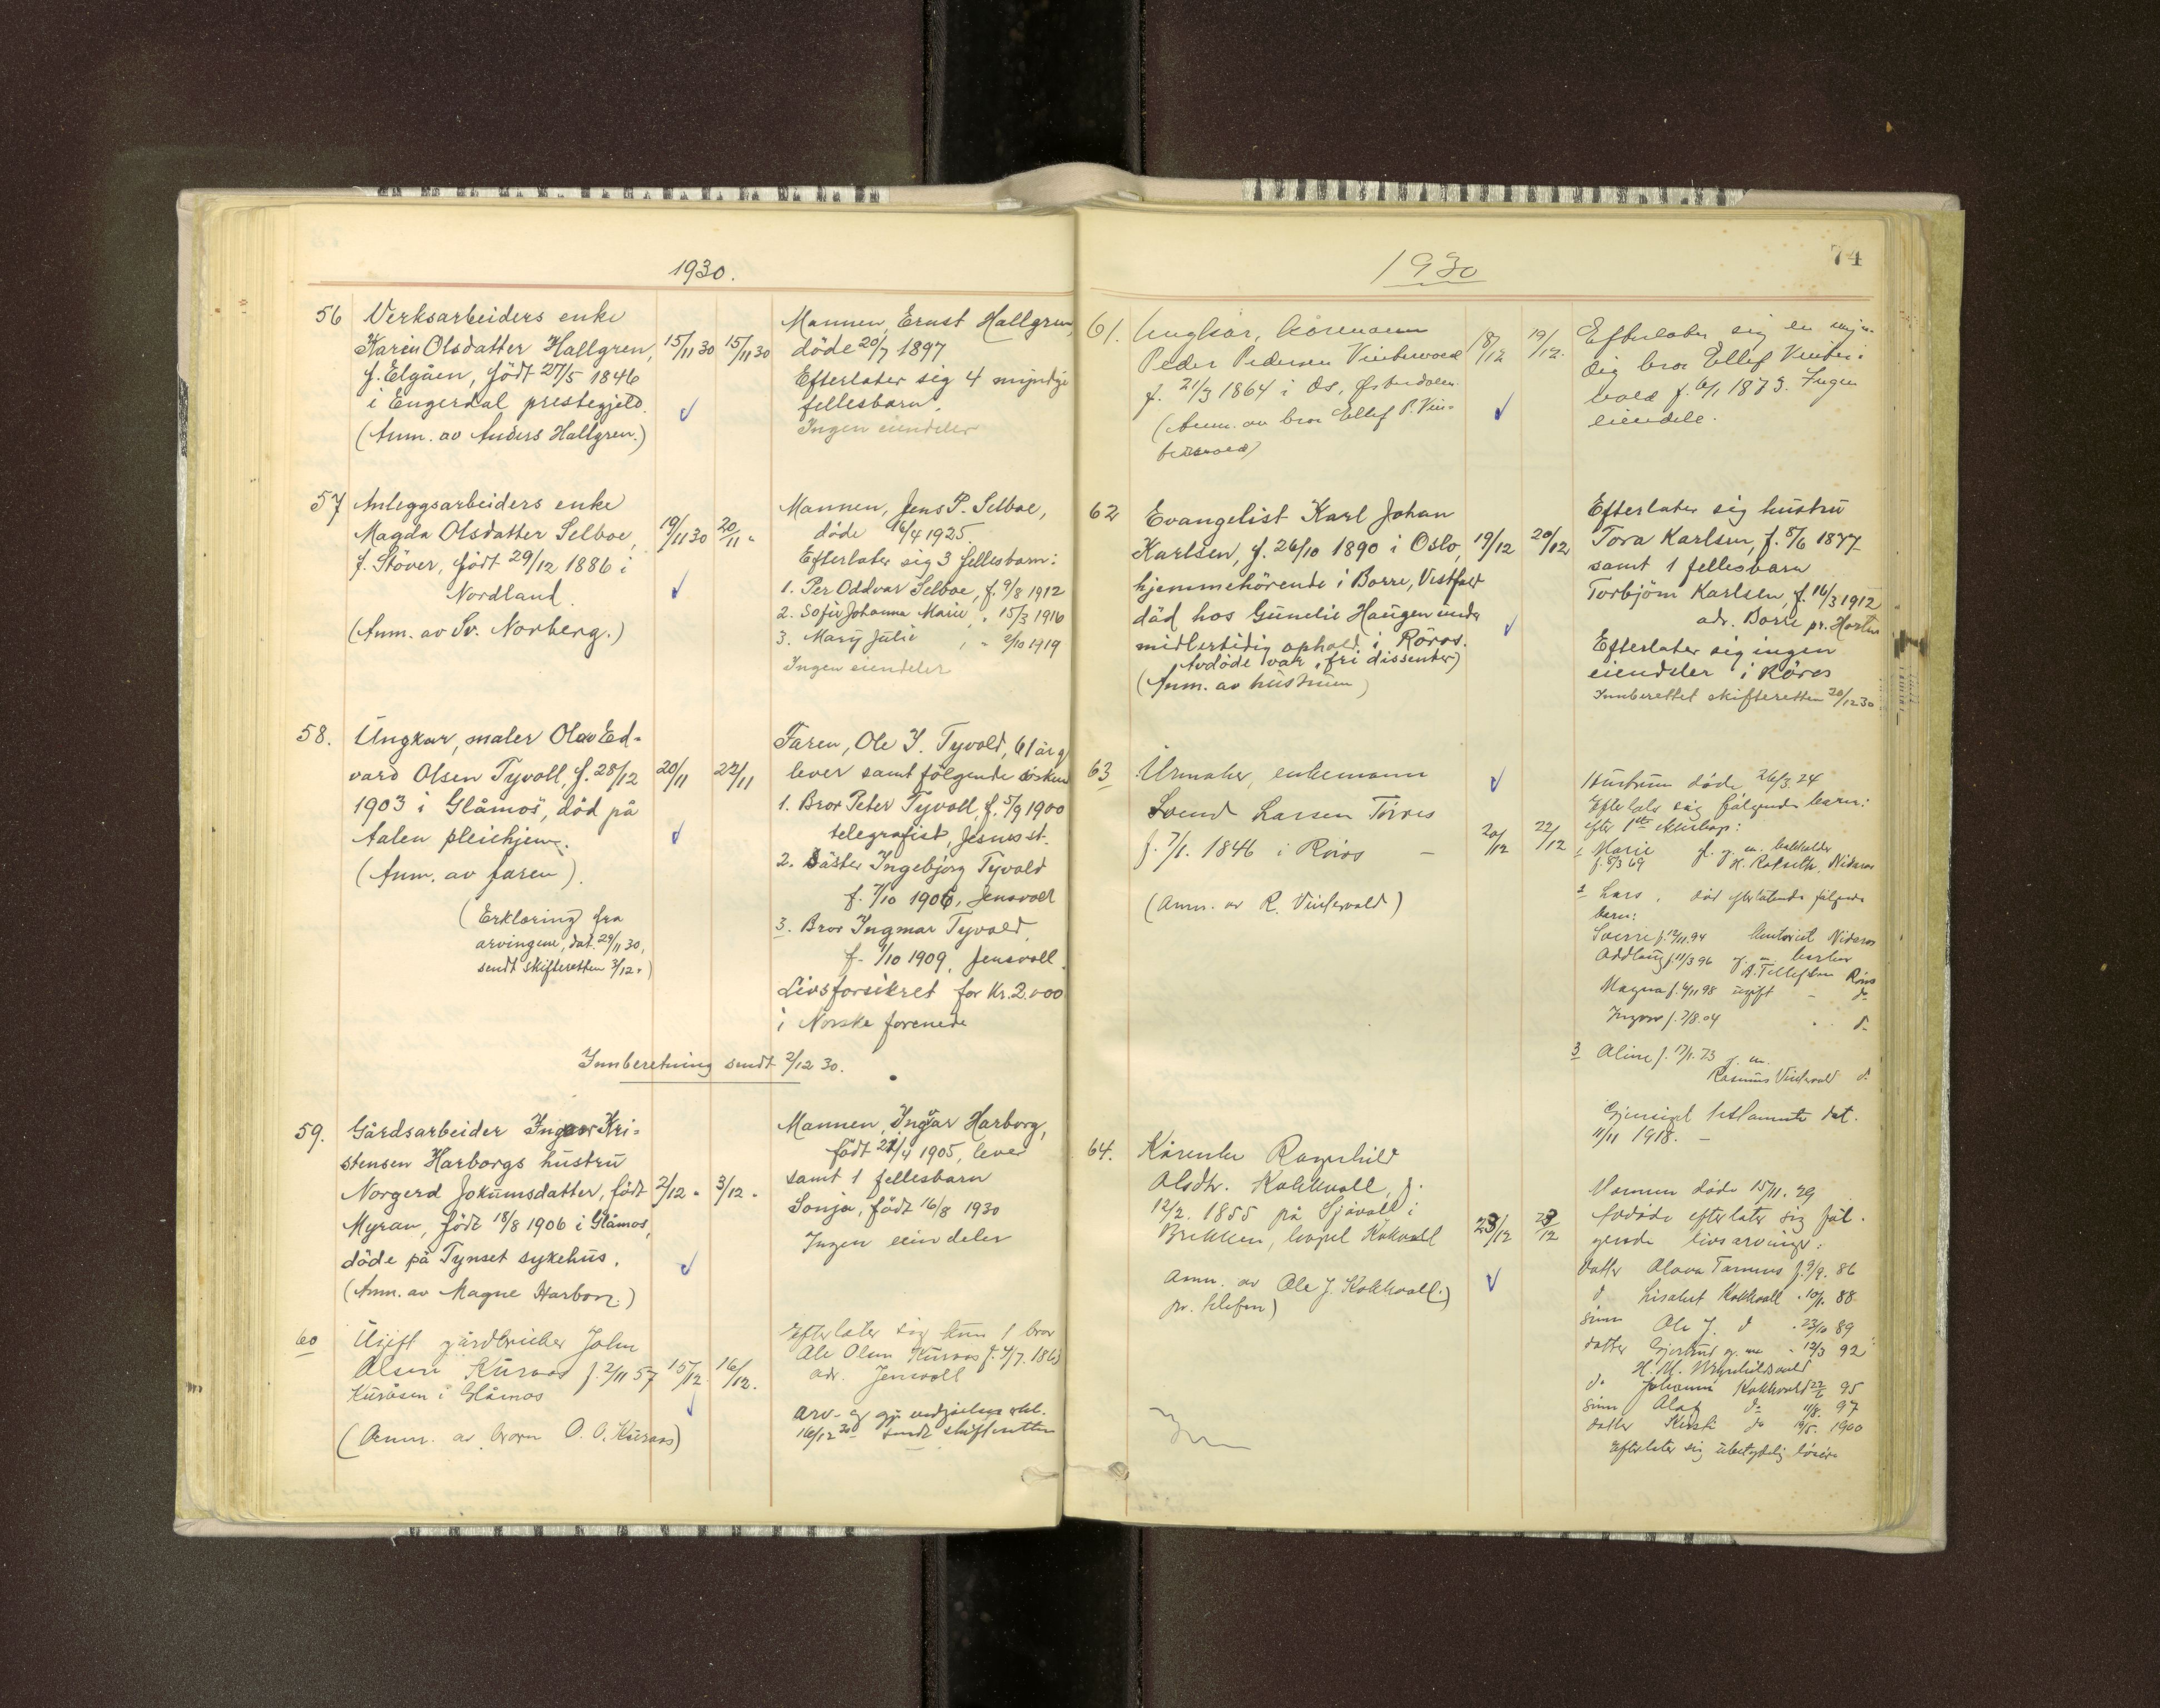 1930.
56 Verksarbeiders enke
Karen Olsdatter Hallgren, 15/11 30 15/11 30
f. Elgåen, født 27/5 1846
i Engerdal prestegjeld.
(Anm. av Anders Hallgren.)
Mannen, Ernst Hallgren,
döde 20/7 1897
Efterlater sig 4 myndige
fellesbarn.
Ingen eiendeler
57 Anleggsarbeiders enke
Magda Olsdatter Selboe, 19/11 30 20/11 "
f. Stöver, født 29/12 1886 i
Nordland.
(Anm. av Sv. Norberg.)
Mannen, Jens P. Selboe,
döde 16/4 1925.
Efterlater sig 3 fellesbarn:
1. Per Oddvar Selboe, f. 9/8 1912
2. Sofie Johanna Marie " 15/3 1916
3. Mary Julie " " 2/10 1919
Ingen eiendeler
58. Ungkar, maler Olav Ed-
vard Olsen Tyvoll, f. 28/12 20/11 22/11
1903 i Glåmos, död på
Aalen pleiehjem.
(Anm. av faren).
(Erklæring fra
arvingene, dat. 29/11 30,
sendt skifteretten 3/12.)
Faren, Ole J. Tyvold, 61 år g
lever samt følgende søsken
1. Bror Peter Tyvoll, f. 5/9 1900
telegrafist, Jesnes st.
2. Søster Ingebjørg Tyvold
f. 7/10 1906, Jensvoll
3. Bror Ingmar Tyvold,
f. 1/10 1909, Jensvoll.
Livsforsikret for Kr. 2.000
i Norske forenede
Innberetning sendt 2/12 30.
59. Gårdsarbeider Ingvar Kri-
stensen Harborgs hustru
Norgerd Jokumsdatter, født 2/12 " 3/12 "
Myran, født 18/8 1906 i Glåmos,
döde på Tynset sykehus.
(Anm. av Magne Harborg)
Mannen, Ingvar Harborg,
født 21/4 1905, lever
samt 1 fellesbarn
Sonja, født 16/8 1930
Ingen eiendeler
60 Ugift gårdbruker John
Olsen Kuraas f. 2/11 57 15/12. 16/12.
Kuråsen i Glåmos
(Anm. av broren O. O. Kuraas)
Efterlater sig kun 1 bror
Ole Olsen Kuraas f. 4/7. 186
adr. Jensvoll
arv- og
16/12 30 sendt skifteretten
1930
74
61. Ungkar,
Peder Pedersen Vintervold 18/12 19/12.
f. 21/3 1864 i Os, Østerdalen
(Anm. av bror Ellef P. Vin-
tervold)
Efterlater sig en myn-
dig bror Ellef Vinter-
vold f. 6/1 1873. Ingen
eiendele.
62 Evangelist Karl Johan
Karlsen, f. 26/10 1890 i Oslo, 19/12 20/12
hjemmehörende i Borre, Vestfold
död hos Gunelie Haugen under
midlertidig ophold i Röros.
(Avdöde var fri dissenter)
(Anm. av hustruen)
Efterlater sig hustru
Tora Karlsen, f. 8/6 1877
samt 1 fellesbarn
Torbjörn Karlsen, f. 16/3 1912
adr. Borre pr. Horten
Efterlater sig ingen
eiendeler i Röros
Innberettet skifteretten 20/12 30
63 Urmaker, enkemann
Svend Larsen Törres
f. 7/1. 1846 i Röros — 20/12 22/12
(Anm. av R. Vintervold)
Hustruen døde 26/3. 24
Efterlater sig følgende barn:
efter 1ste ekteskap:
1 Marie g. m.
f. 8/3 69 Nidaros
2 Lars, død efterlatende følgende
barn:
Sverre f. 12/11. 94 kontorist Nidaros
Addlaug f. 11/3 96 g. m.
A. Tellefsen Röros
Magna f. 4/11 98 ugift - do
Ingvar f. 7/8. 04 " d-
3 Aline f. 17/1. 73 g. m.
Rasmus Vintervold d-
Gjensidig testamente dat.
11/11 1918. —
64. Kårenke Ragnhild
Olsdtr. Kokkvoll, f.
12/2. 1855 på Sjövoll i
Brekken, bopel Kokvoll 23/12 23/12
Anm. av Ole J. Kokkvoll.
pr. telefon)
Mannen døde 15/11. 29
Avdøde efterlater sig føl-
gende livsarvinger:
datter Olava Tamnes f. 9/9. 86
d Lisabet Kokkvoll " 10/1. 88
sønn Ole J. d " 23/10 89
datter Gjertrud g. m. " 12/3 92
do Johanna Kokkvold 22/6 95
sønn Olaf do 11/8. 97
datter Kirsti do 19/5. 1900
Efterlater sig ubetydelig løsøre